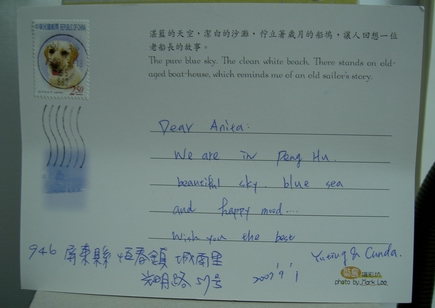 湛藍的天空，潔白的沙灘，佇立著歲月的船塢，讓人回想一位
老船長的故事。
The pure blue sky. The clean white beach. There stands on old-
aged boat-house, which reminds me of an old sailor's story.
Dear Anita:
We are in Peng Hu.
beautiful sky. blue sea
and happy mood...
Wish you the best
946 屏東縣 恆春鎮 城南里
光明路 51号
2007'9'1
photo by Mark Lee